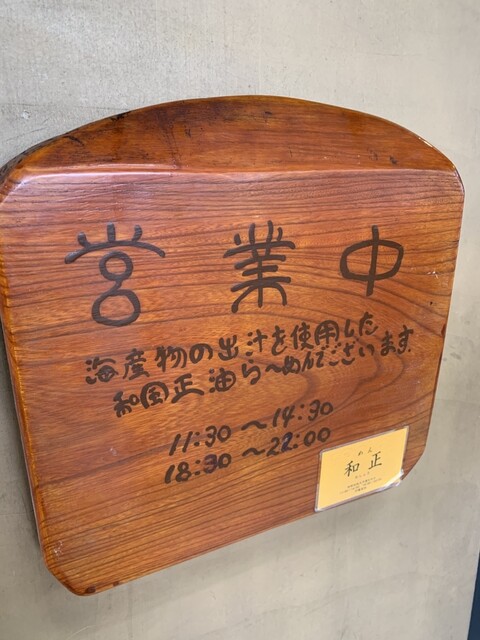 営業中
海産物の出汁を使用した
和風正油ら〜めんでございます。
11:30〜14:30
18:30〜22:00
めん
和正